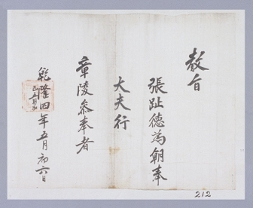 敎旨
張趾德為朝奉
大夫行
章陵叅奉者
乾隆四年五月初六日
212